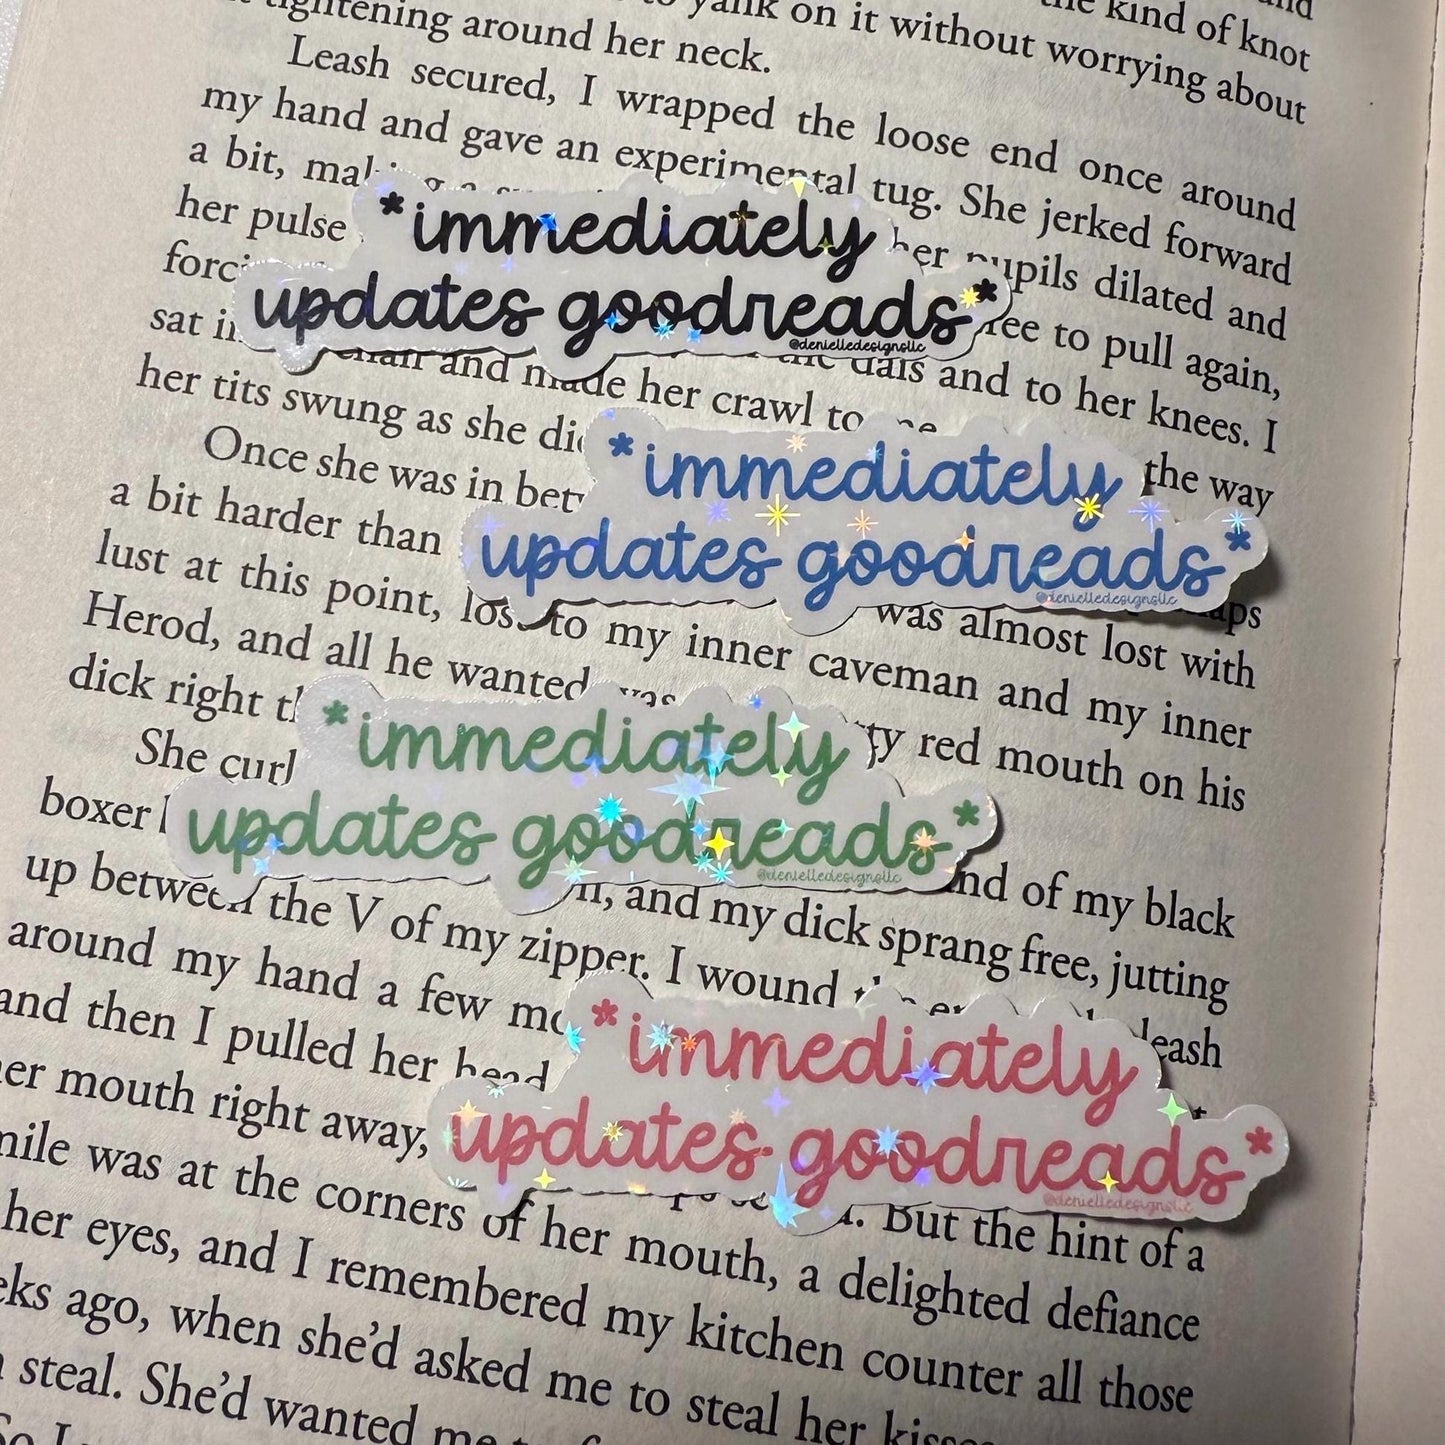 to yank on it without worrying about
tightening around her neck. the kind of knot
Leash secured, I wrapped the loose end once around
my hand and gave an experimental tug. She jerked forward
a bit, her pupils dilated and
her pulse to pull again,
sat and made her crawl to the dais and to her knees. I
her tits swung as she the way
Once she was in
a bit harder than
lust at this point, to my inner was almost lost with
Herod, and all he wanted was caveman and my inner
dick right red mouth on his
She
boxer of my black
up between the V of my zipper. and my dick sprang free, jutting
around my hand a few I wound leash
and then I pulled her head
mouth right away,
was at the corners of her mouth, But the hint of a
her eyes, and I remembered my kitchen a delighted defiance
ago, when she'd asked me to steal her counter all those
steal. She'd wanted
*immediately
updates goodreads*
@denielledesignsllc
*immediately
updates goodreads*
@denielledesignsllc
*immediately
updates goodreads*
@denielledesignsllc
*immediately
updates goodreads*
@denielledesignsllc